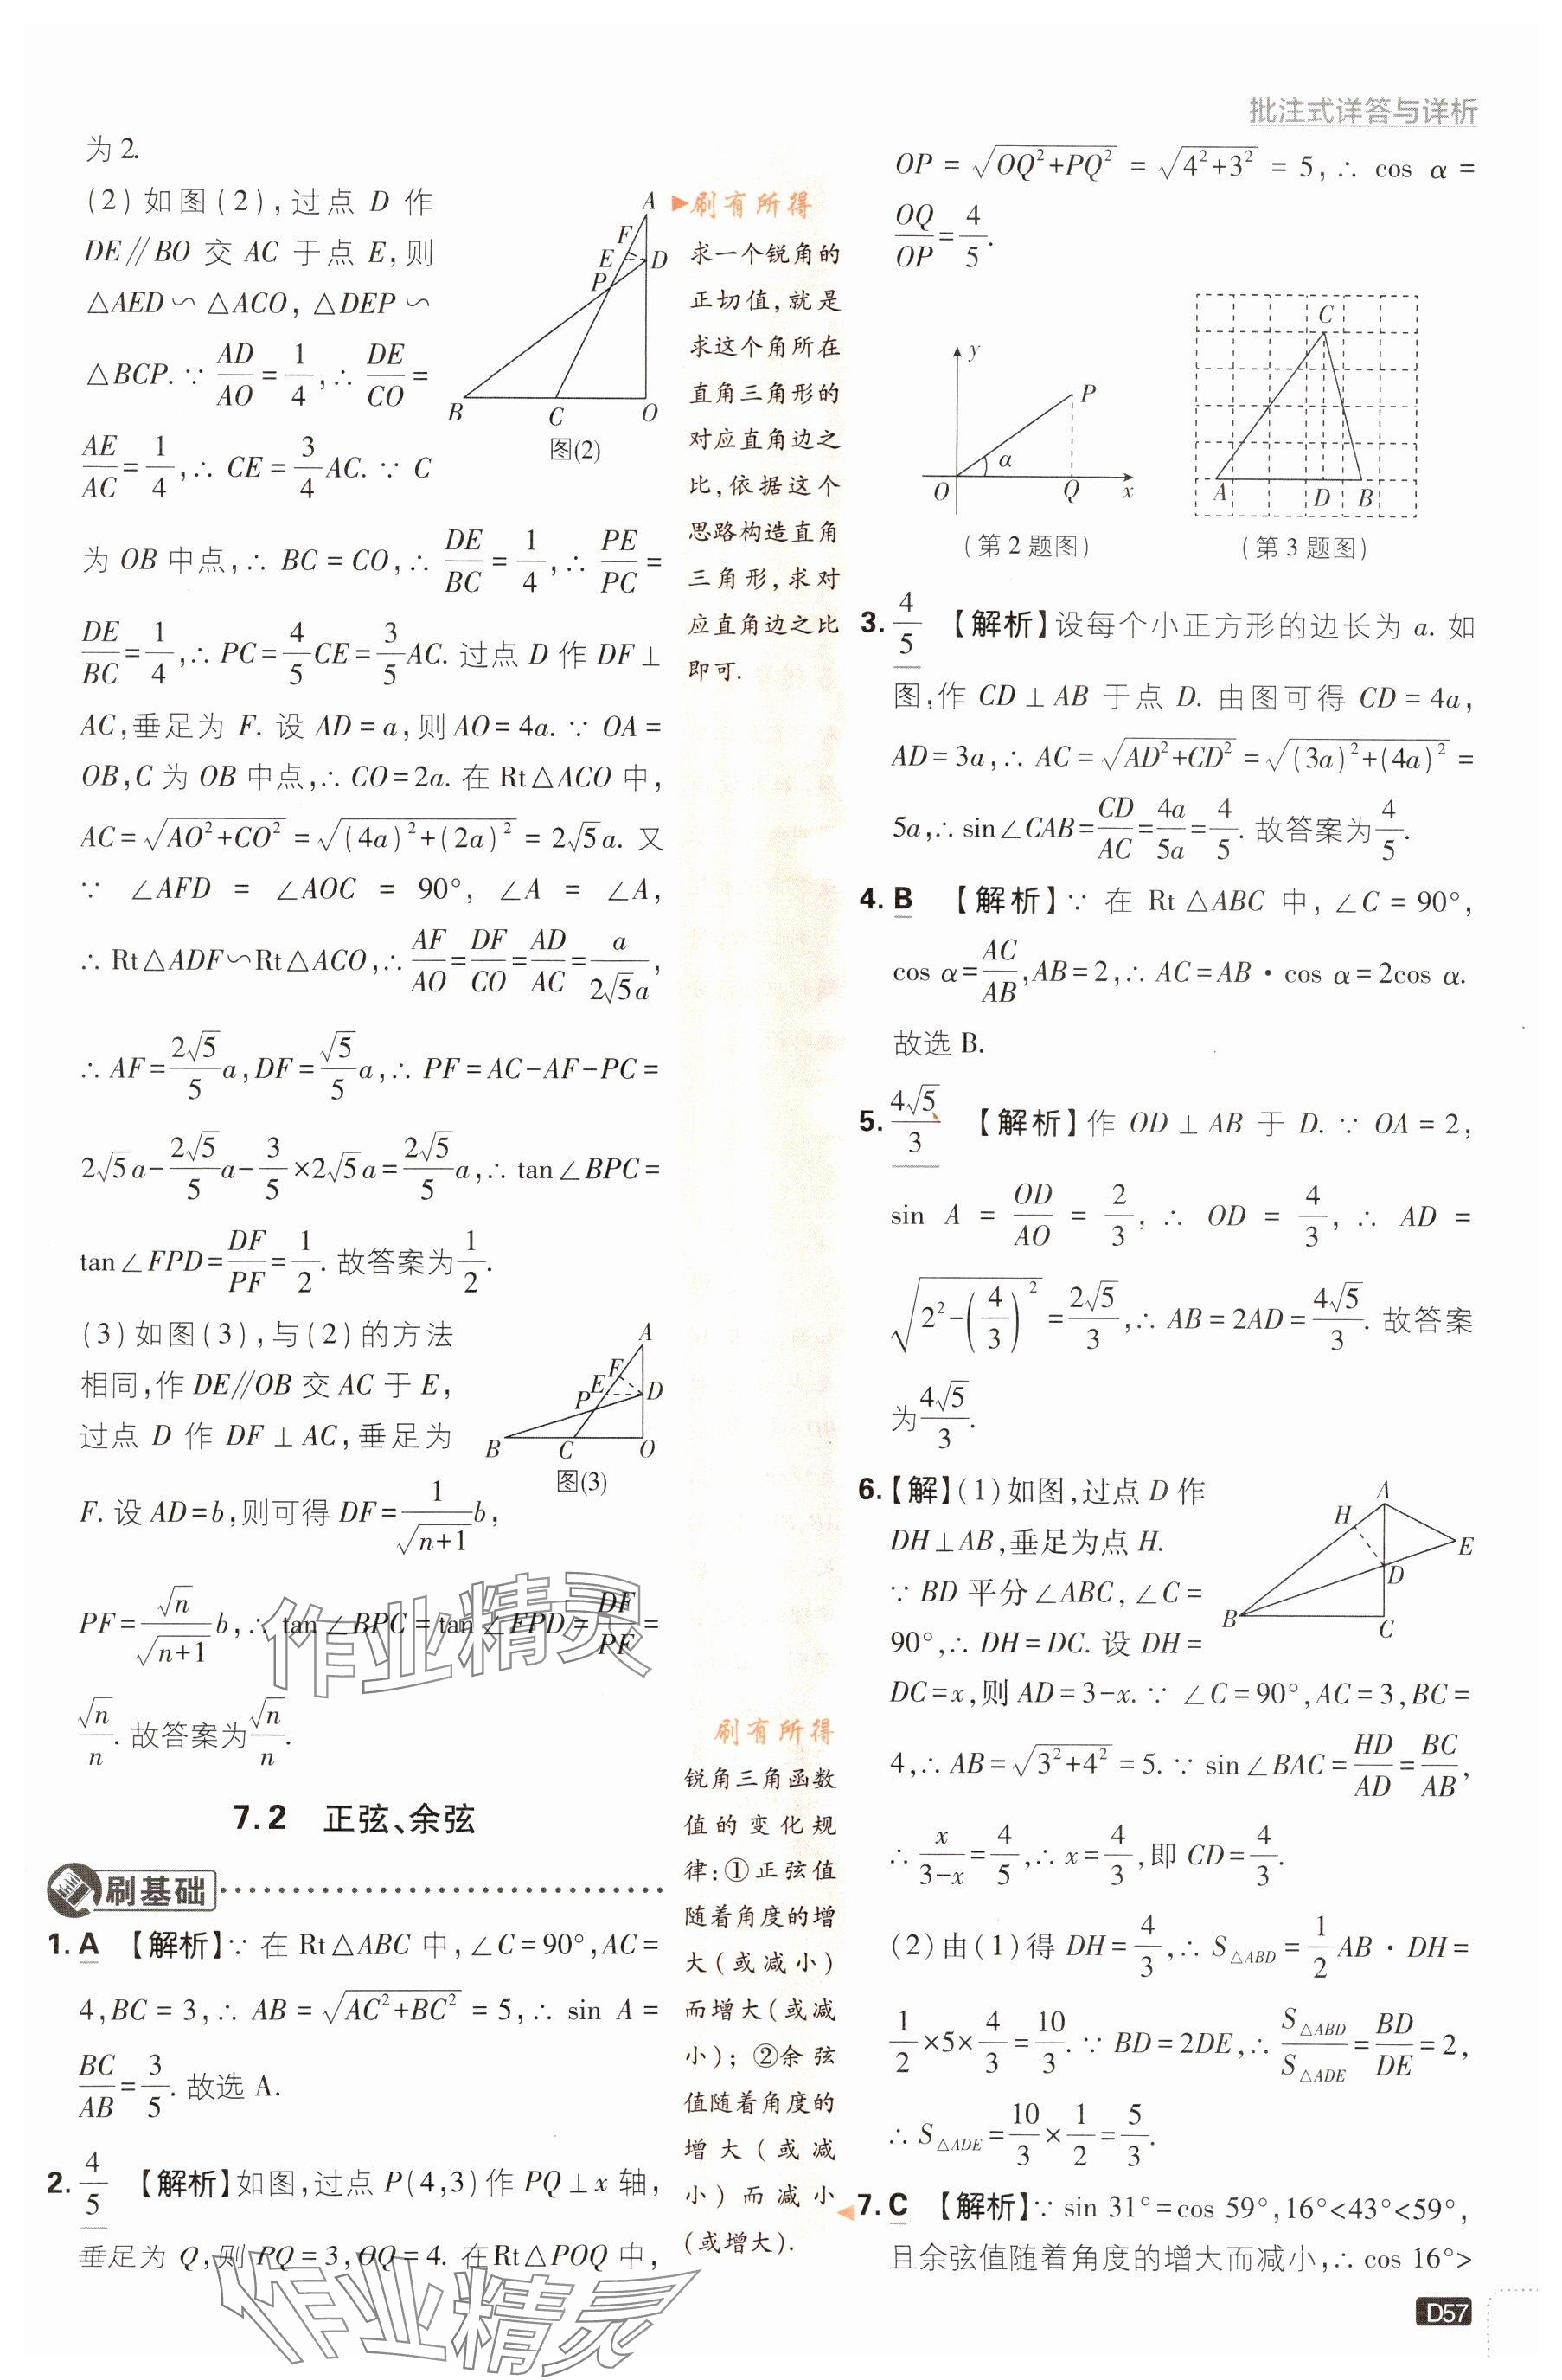 批注式详答与详析
为2.
(2)如图(2),过点 D 作
DE∥BO 交 AC 于点 E,则
△AED∽△ACO,△DEP∽
△BCP.∵AD/AO=1/4,∴DE/CO=
AE/AC=1/4,∴CE=3/4AC.∵C
A
F
E
D
P
B
C
O
图(2)
为 OB 中点,∴BC=CO,∴DE/BC=1/4,∴PE/PC=
DE/BC=1/4,∴PC=4/5CE=3/5AC.过点 D 作 DF⊥
AC,垂足为 F.设 AD=a,则AO=4a.∵OA=
OB,C 为 OB 中点,∴CO=2a.在 Rt△ACO 中,
AC=√(AO²+CO²)=√((4a)²+(2a)²)=2√5a.又
∵∠AFD=∠AOC=90°,∠A=∠A,
∴Rt△ADF∽Rt△ACO,∴AF/AO=DF/CO=AD/AC=a/(2√5a),
∴AF=2√5/5a,DF=√5/5a,∴PF=AC-AF-PC=
2√5a-2√5/5a-3/5×2√5a=2√5/5a,∴tan∠BPC=
tan∠FPD=DF/PF=1/2.故答案为1/2.
(3)如图(3),与(2)的方法
相同,作DE∥OB 交 AC 于 E,
过点 D 作 DF⊥AC,垂足为
A
F
E
P
D
B
C
O
图(3)
F.设 AD=b,则可得 DF=1/√(n+1)b,
PF=√n/√(n+1)b,∴tan∠BPC=tan∠FPD=DF/PF=
√n/n.故答案为√n/n.
7.2 正弦、余弦
刷基础
1.A 【解析】∵在 Rt△ABC 中,∠C=90°,AC=
4,BC=3,∴AB=√(AC²+BC²)=5,∴sin A=
BC/AB=3/5.故选 A.
2.4/5 【解析】如图,过点 P(4,3)作 PQ⊥x 轴,
垂足为 Q,则 PQ=3,OQ=4.在Rt△POQ 中,
刷有所得
求一个锐角的
正切值,就是
求这个角所在
直角三角形的
对应直角边之
比,依据这个
思路构造直角
三角形,求对
应直角边之比
即可.
刷有所得
锐角三角函数
值的变化规
律:①正弦值
随着角度的增
大(或减小)
而增大(或减
小);②余弦
值随着角度的
增大(或减
小)而减小
(或增大).
OP=√(OQ²+PQ²)=√(4²+3²)=5,∴cos α=
OQ/OP=4/5.
y
P
α
O
Q
x
(第2题图)
C
A
D
B
(第3题图)
3.4/5 【解析】设每个小正方形的边长为 a.如
图,作 CD⊥AB 于点 D.由图可得 CD=4a,
AD=3a,∴AC=√(AD²+CD²)=√((3a)²+(4a)²)=
5a,∴sin∠CAB=CD/AC=4a/5a=4/5.故答案为4/5.
4.B 【解析】∵在 Rt△ABC 中,∠C=90°,
cos α=AC/AB,AB=2,∴AC=AB·cos α=2cos α.
故选 B.
5.4√5/3 【解析】作 OD⊥AB 于 D.∵OA=2,
sin A=OD/AO=2/3,∴OD=4/3,∴AD=
√(2²-(4/3)²)=2√5/3,∴AB=2AD=4√5/3.故答案
为4√5/3.
6.【解】(1)如图,过点 D 作
DH⊥AB,垂足为点 H.
∵BD 平分∠ABC,∠C=
90°,∴DH=DC.设 DH=
A
H
E
D
B
C
DC=x,则 AD=3-x.∵∠C=90°,AC=3,BC=
4,∴AB=√(3²+4²)=5.∵sin∠BAC=HD/AD=BC/AB,
∴x/(3-x)=4/5,∴x=4/3,即 CD=4/3.
(2)由(1)得 DH=4/3,∴S△ABD=1/2AB·DH=
1/2×5×4/3=10/3.∵BD=2DE,∴S△ABD/S△ADE=BD/DE=2,
∴S△ADE=10/3×1/2=5/3.
7.C 【解析】∵sin 31°=cos 59°,16°<43°<59°,
且余弦值随着角度的增大而减小,∴cos 16°>
D57
作业精灵
作业精灵